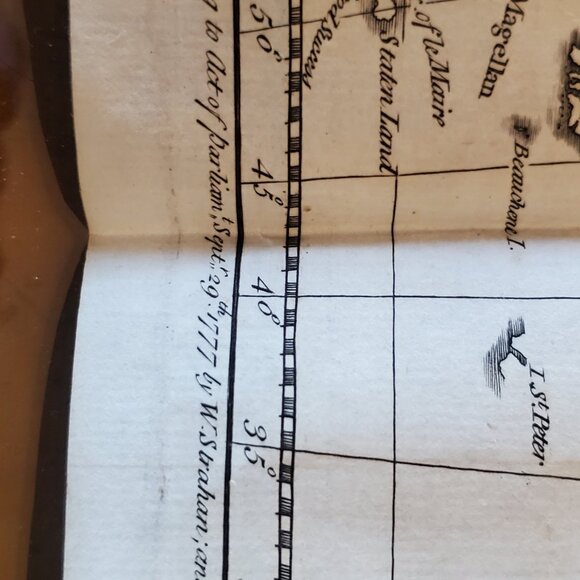 Magellan
S. of le Maire
Staten Land
Beauchene I.
I. St. Peter
50°
45°
40°
35°
g to Act of Parliamt. Septr. 29th. 1777 by W. Strahan; and